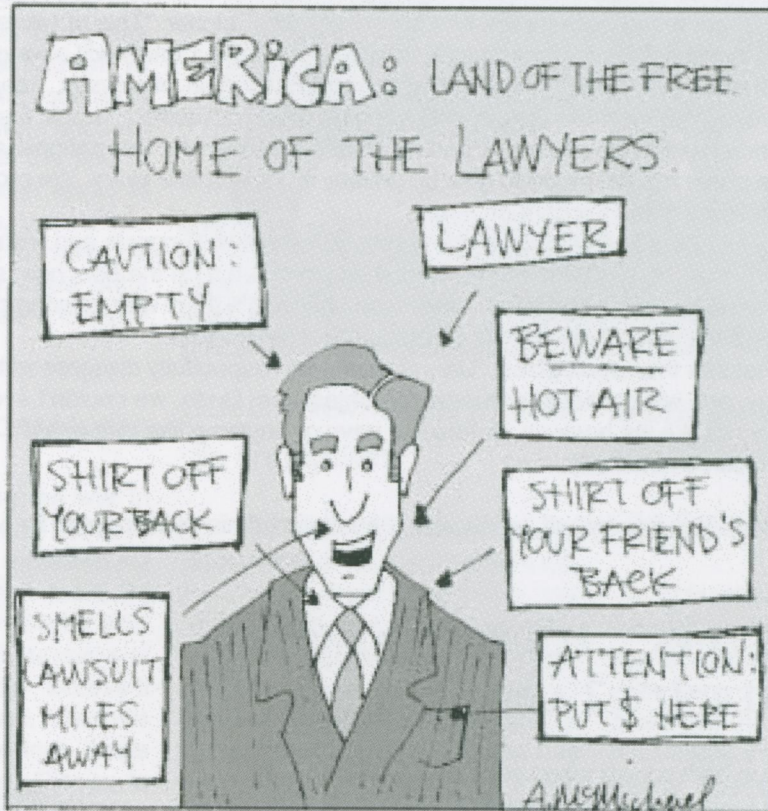 AMERICA: LAND OF THE FREE.
HOME OF THE LAWYERS.
CAUTION:
EMPTY
LAWYER
BEWARE
HOT AIR
SHIRT OFF
YOUR BACK
SHIRT OFF
YOUR FRIEND'S
BACK
SMELLS
LAWSUIT
MILES
AWAY
ATTENTION:
PUT $ HERE
A. McMichael